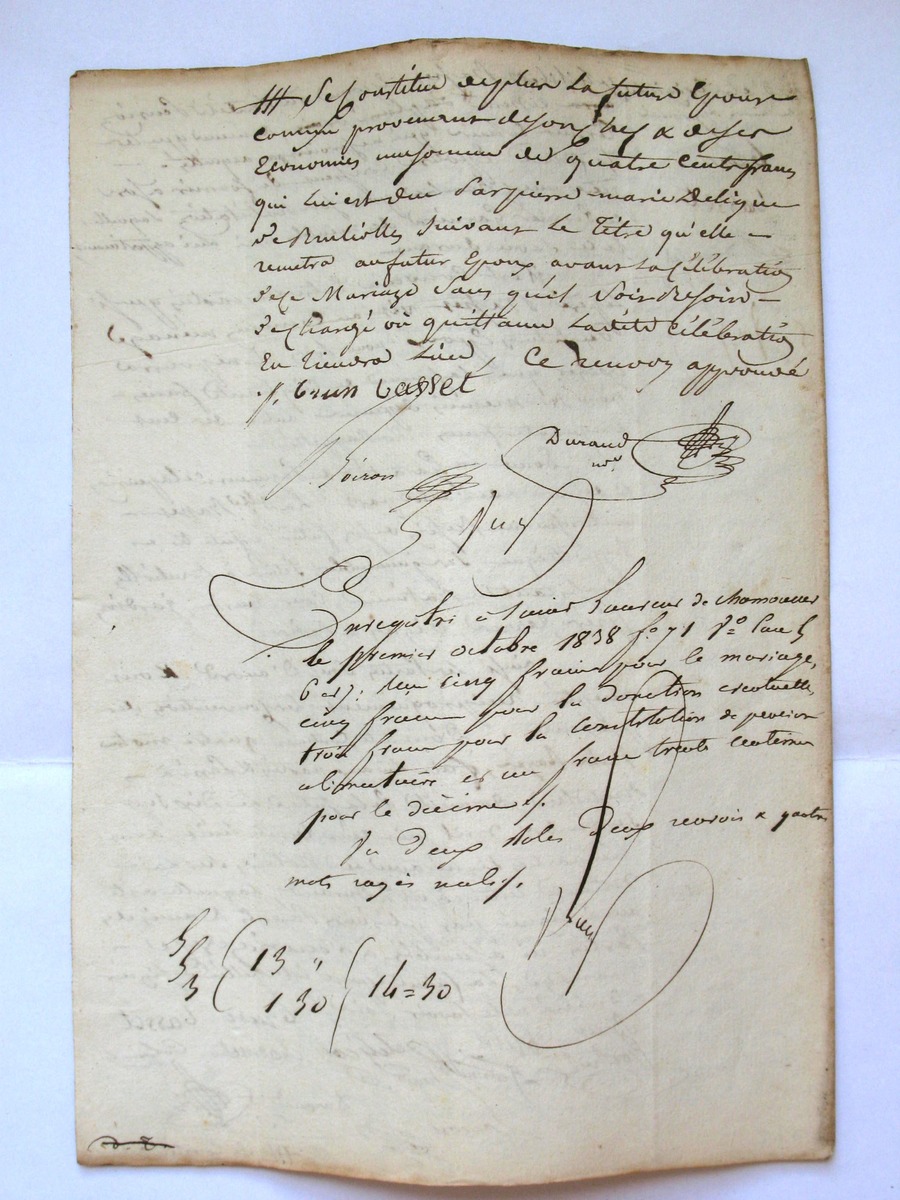 # Se Constitue deplus La future Epouse
comme provenant de ses & de ses
Economies une somme de quatre Cents francs
qui Lui est due Par pierre marie Deligue
de Brullioles Suivant Le Titre qu'elle
remettra au futur Epoux avant La Célébration
de Ce Mariage Sans qu'il Soit Besoin
de Charge ou quittance Ladite Célébration
En Tiendra Lieu, Ce renvoy approuvé
J. Brun basset
Durand
nre.
Voiron
Enregistré à Saint Laurent de chamousset
le premier octobre 1838 fo 71 Vo Case 5
6 et 7: Reçu cinq francs pour le mariage,
cinq francs pour la donation eventuelle,
trois francs pour la constitution de pension
alimentaire et un franc trente centimes
pour le décime /.
Vu deux rôles deux renvois & quatre
mots rayés nuls /.
5
5 13 "
3 1 30 14=30